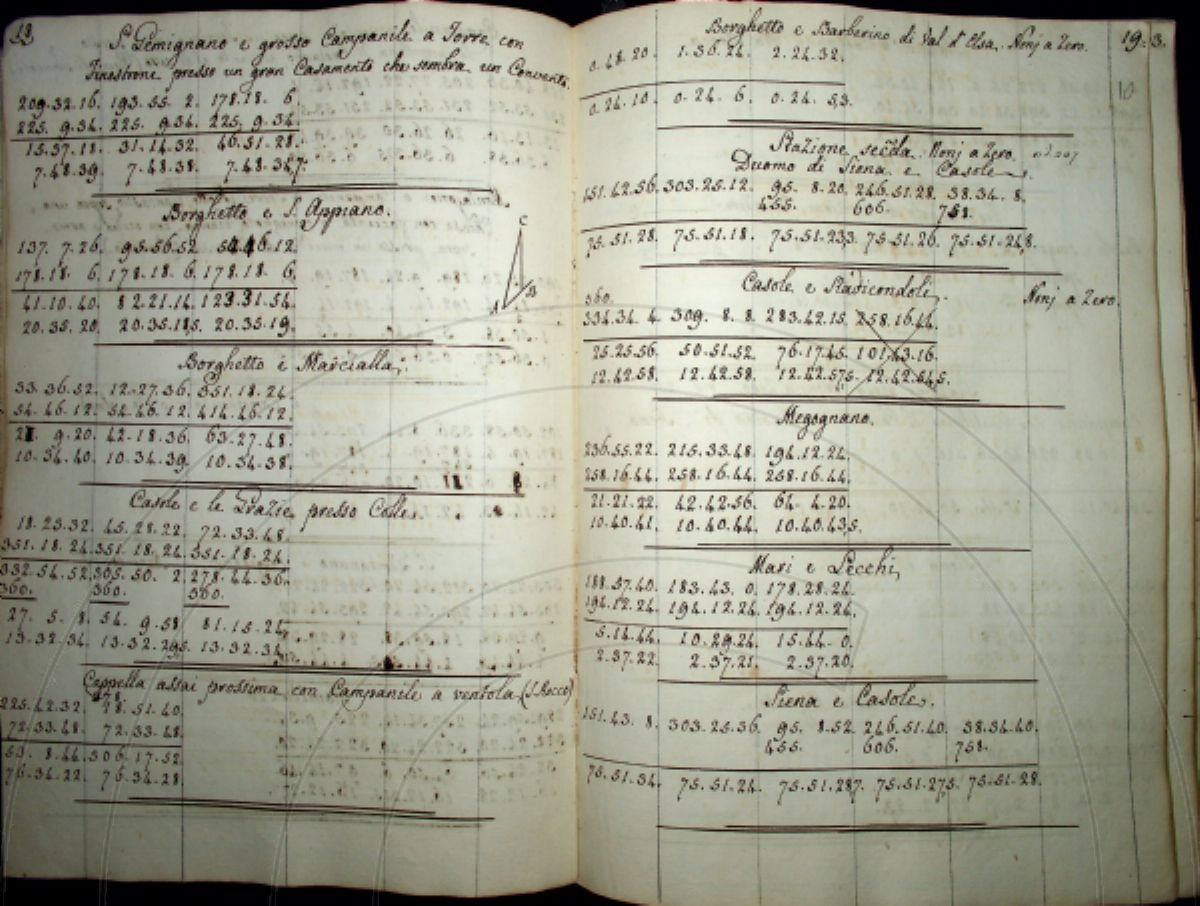 18
S. Gemignano e grosso Campanile a Torre con
Finestrone presso un gran Casamento che sembra un Convento.
209.32.16. 193.55. 2. 178.18. 6.
225. 9.34. 225. 9.34. 225. 9.34.
15.37.18. 31.14.32. 46.51.28.
7.48.39. 7.48.38. 7.48.347.
Borghetto e S. Appiano.
137. 7.26. 95.56.52. 54.46.12.
178.18. 6. 178.18. 6. 178.18. 6.
41.10.40. 82.21.14. 123.31.54.
20.35.20. 20.35.185. 20.35.19.
C
A B
Borghetto e Marcialla.
33.36.52. 12.27.36. 351.18.24.
54.46.12. 54.46.12. 414.46.12.
21. 9.20. 42.18.36. 63.27.48.
10.34.40. 10.34.39. 10.34.38.
Casole e le Grazie presso Colle.
18.23.32. 45.28.22. 72.33.48.
351.18.24. 351.18.24. 351.18.24.
332.54.52. 305.50. 2. 278.44.36.
360. 360. 360.
27. 5. 8. 54. 9.58. 81.15.24.
13.32.34. 13.32.295. 13.32.34.
Cappella assai prossima con Campanile a ventola (S. Rocco)
378.
225.42.32. 18.51.40.
72.33.48. 72.33.48.
53. 8.44. 306.17.52.
76.34.22. 76.34.28.
Borghetto e Barberino di Val d'Elsa. Nonj a Zero. 19. 3.
0.48.20. 1.36.24. 2.24.32.
10
0.24.10. 0.24. 6. 0.24. 53.
Stazione secda. Nonj a Zero.
Duomo di Siena e Casole.
151.42.56. 303.25.12. 95. 8.20. 246.51.28. 38.34. 8.
455. 606. 758.
75.51.28. 75.51.18. 75.51.233. 75.51.26. 75.51.248.
Casole e Radicondoli. Nonj a Zero.
360.
334.34. 4. 309. 8. 8. 283.42.15. 258.16.44.
25.25.56. 50.51.52. 76.17.45. 101.43.16.
12.42.58. 12.42.58. 12.42.575. 12.42.545.
Megognano.
236.55.22. 215.33.48. 194.12.24.
258.16.44. 258.16.44. 258.16.44.
21.21.22. 42.42.56. 64. 4.20.
10.40.41. 10.40.44. 10.40.435.
Mari e Lecchi
188.57.40. 183.43. 0. 178.28.24.
194.12.24. 194.12.24. 194.12.24.
5.14.44. 10.29.24. 15.44. 0.
2.37.22. 2.37.21. 2.37.20.
Siena e Casole.
151.43. 8. 303.25.36. 95. 8.52. 246.51.40. 38.34.40.
455. 606. 758.
75.51.34. 75.51.24. 75.51.287. 75.51.275. 75.51.28.